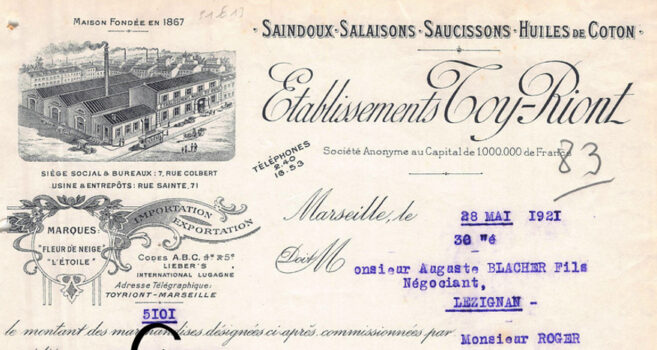 MAISON FONDÉE EN 1867
SAINDOUX · SALAISONS · SAUCISSONS · HUILES DE COTON
Etablissements Toy-Riont
TÉLÉPHONES
2.40
16.53
Société Anonyme au Capital de 1.000.000 de Francs
83
SIÈGE SOCIAL & BUREAUX : 7, RUE COLBERT
USINE & ENTREPÔTS : RUE SAINTE, 71
IMPORTATION
EXPORTATION
MARQUES:
"FLEUR DE NEIGE"
"L'ÉTOILE"
CODES A.B.C. 4e & 5e
LIEBER'S
INTERNATIONAL LUGAGNE
Adresse Télégraphique:
TOYRIONT-MARSEILLE
Marseille, le 28 MAI 1921
Doit M onsieur Auguste BLACHER Fils
Négociant,
LEZIGNAN -
5101
le montant des marchandises désignées ci-après, commissionnées par Monsieur ROGER